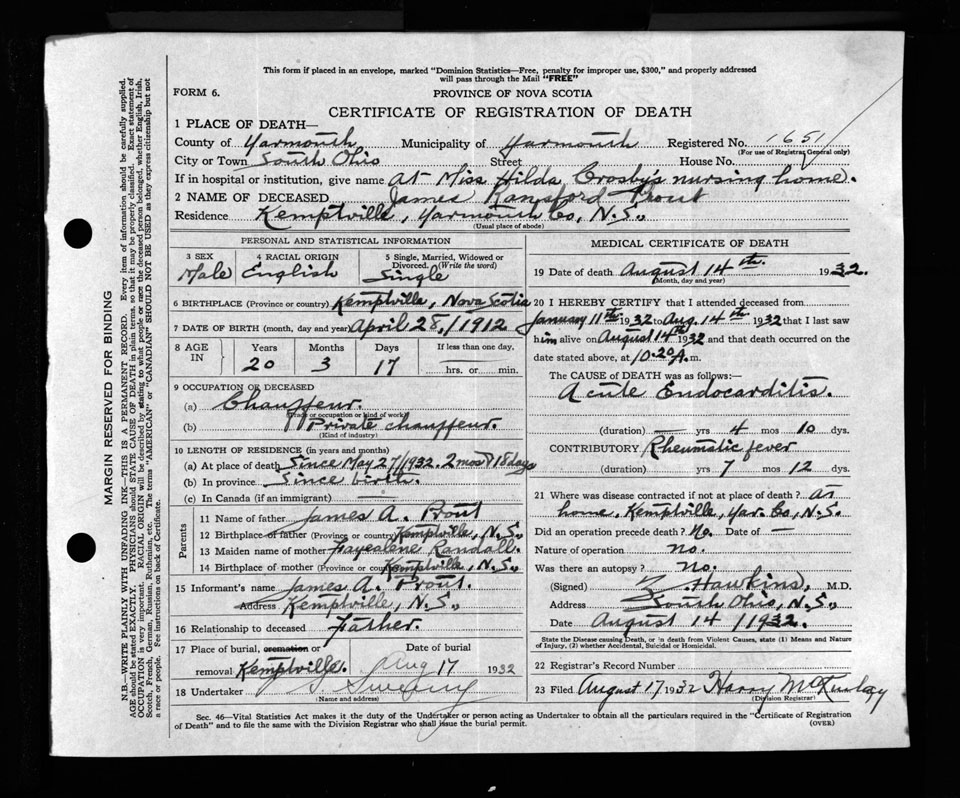 This form if placed in an envelope, marked "Dominion Statistics—Free, penalty for improper use, $300," and properly addressed
will pass through the Mail "FREE"
FORM 6.
PROVINCE OF NOVA SCOTIA
CERTIFICATE OF REGISTRATION OF DEATH
1 PLACE OF DEATH—
County of Yarmouth Municipality of Yarmouth Registered No. 1651
(For use of Registrar General only)
City or Town South Ohio Street House No.
If in hospital or institution, give name At Miss Hilda Crosby's nursing home.
2 NAME OF DECEASED James Ransford Prout
Residence Kemptville, Yarmouth Co, N.S.,
(Usual place of abode)
PERSONAL AND STATISTICAL INFORMATION
3 SEX 4 RACIAL ORIGIN 5 Single, Married, Widowed or
Divorced. (Write the word)
Male English Single
6 BIRTHPLACE (Province or country) Kemptville, Nova Scotia
7 DATE OF BIRTH (month, day and year) April 28,/1912
8 AGE IN Years Months Days If less than one day.
20 3 17 hrs. or min.
9 OCCUPATION OF DECEASED
(a) Chauffeur.
(Trade or occupation or kind of work)
(b) Private chauffeur.
(Kind of industry)
10 LENGTH OF RESIDENCE (in years and months)
(a) At place of death Since May 27/1932. 2 mos 18 days
(b) In province Since birth.
(c) In Canada (if an immigrant) —
Parents
11 Name of father James A. Prout
12 Birthplace of father (Province or country) Kemptville, N.S.,
13 Maiden name of mother Fayealene Randall.
14 Birthplace of mother (Province or country) Kemptville, N.S.,
15 Informant's name James A. Prout.
Address Kemptville, N.S.,
16 Relationship to deceased Father.
17 Place of burial, cremation or Date of burial
removal Kemptville. Aug 17 1932
18 Undertaker Sweeny
(Name and address)
MEDICAL CERTIFICATE OF DEATH
19 Date of death August 14th. 1932.
(Month, day and year)
20 I HEREBY CERTIFY that I attended deceased from
January 11th 1932 to Aug. 14th 1932 that I last saw
him alive on August 14th 1932 and that death occurred on the
date stated above, at 10.20 A.m.
The CAUSE of DEATH was as follows:—
Acute Endocarditis.
(duration) — yrs 4 mos 10 dys.
CONTRIBUTORY Rheumatic fever
(duration) yrs 7 mos 12 dys.
21 Where was disease contracted if not at place of death? at
home, Kemptville, Yar. Co, N.S.
Did an operation precede death? No. Date of —
Nature of operation no.
Was there an autopsy? no.
(Signed) Hawkins, M.D.
Address South Ohio, N.S.,
Date August 14 /1932.
State the Disease causing Death, or in death from Violent Causes, state (1) Means and Nature
of Injury, (2) whether Accidental, Suicidal or Homicidal.
22 Registrar's Record Number
23 Filed August 17 1932 Harry McKinlay
(Division Registrar)
Sec. 46—Vital Statistics Act makes it the duty of the Undertaker or person acting as Undertaker to obtain all the particulars required in the "Certificate of Registration
of Death" and to file the same with the Division Registrar who shall issue the burial permit. (OVER)
MARGIN RESERVED FOR BINDING
N.B.—WRITE PLAINLY WITH UNFADING INK—THIS IS A PERMANENT RECORD. Every item of information should be carefully supplied.
AGE should be stated EXACTLY. PHYSICIANS should STATE CAUSE OF DEATH in plain terms, so that it may be properly classified. Exact statement of
OCCUPATION is very important. RACIAL ORIGIN will be described by stating to what people or race the deceased person belonged, whether English, Irish,
Scotch, French, German, Russian, Ruthenian, etc. The terms "AMERICAN" or "CANADIAN" SHOULD NOT BE USED as they express citizenship but not
a race or people. Fee instructions on back of Certificate.